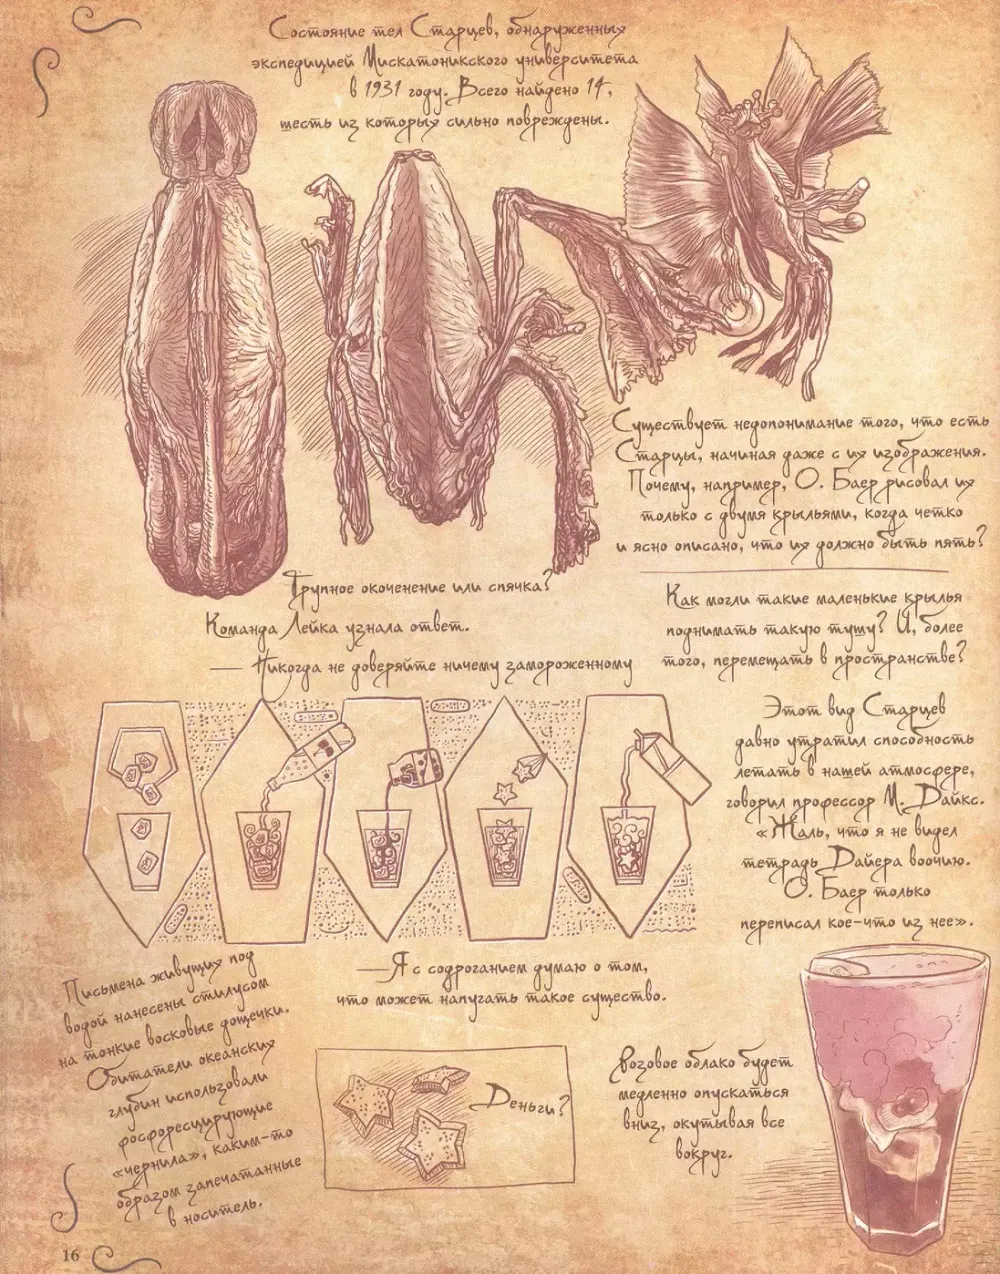 Состояние тел Старцев, обнаруженных
экспедицией Мискатоникского университета
в 1931 году. Всего найдено 14,
шесть из которых сильно повреждены.
Существует недопонимание того, что есть
Старцы, начиная даже с их изображения.
Почему, например, О. Баер рисовал их
только с двумя крыльями, когда четко
и ясно описано, что их должно быть пять?
Трупное окоченение или спячка?
Команда Лейка узнала ответ.
— Никогда не доверяйте ничему замороженному
Как могли такие маленькие крылья
поднимать такую тушу? И, более
того, перемещать в пространстве?
Этот вид Старцев
давно утратил способность
летать в нашей атмосфере,
говорил профессор М. Дайкс.
«Жаль, что я не видел
тетрадь Дайера воочию.
О. Баер только
переписал кое-что из нее».
Письмена живущих под
водой нанесены стилусом
на тонкие восковые дощечки.
Обитатели океанских
глубин использовали
фосфоресцирующие
«чернила», каким-то
образом запечатанные
в носитель.
—Я с содроганием думаю о том,
что может напугать такое существо.
Деньги?
Розовое облако будет
медленно опускаться
вниз, окутывая все
вокруг.
16